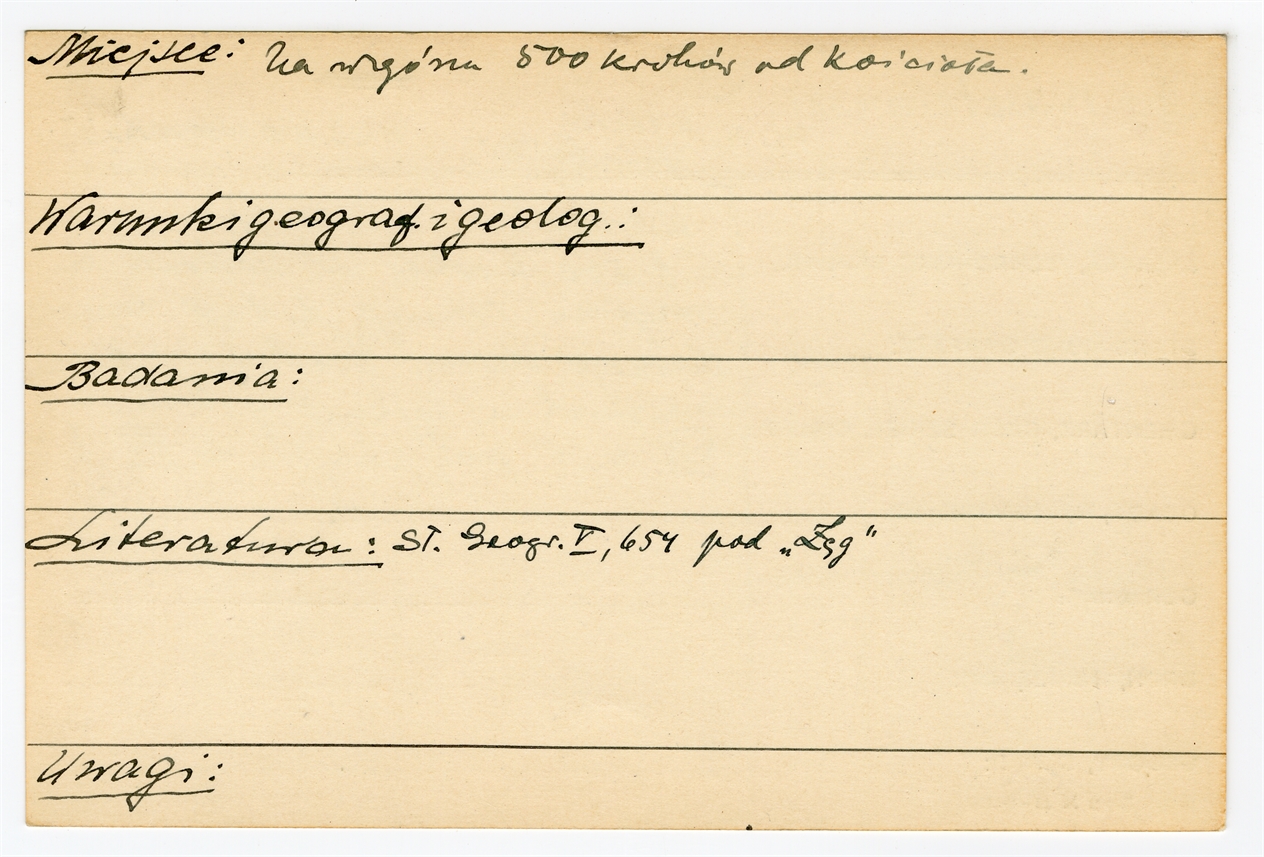 Miejsce: Na wzgórzu 500 kroków od kościoła.
Warunki geograf. i geolog.:
Badania:
Literatura: Sł. Geogr. V, 654 pod „Łęg”
Uwagi: